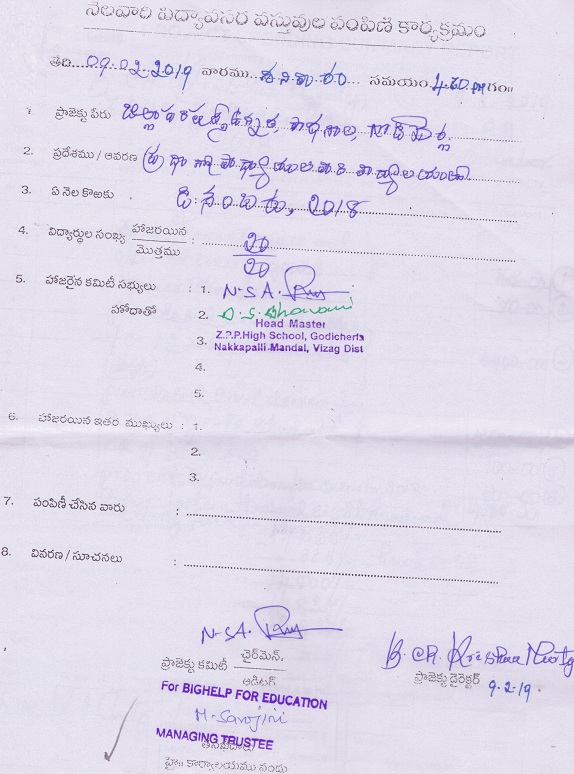 నెలవారి విద్యావసర వస్తువుల పంపిణి కార్యక్రమం
తేది...09.02.2019 వారము...శనివారం... సమయం.4.00 PM గం॥
1. ప్రాజెక్టు పేరు జిల్లా పరిషత్ ఉన్నత పాఠశాల, గొడిచెర్ల
2. ప్రదేశము / ఆవరణ ప్రధానోపాధ్యాయుల వారి కార్యాలయం
3. ఏ నెల కొఱకు డిసెంబరు, 2018
4. విద్యార్థుల సంఖ్య హాజరయిన / మొత్తము : 20 / 20
5. హాజరైన కమిటీ సభ్యులు : 1. N.S.A.
హోదాతో 2. D.S. Bhavani
Head Master
3. Z.P.P.High School, Godicherla
Nakkapalli Mandal, Vizag Dist
4.
5.
6. హాజరయిన ఇతర ముఖ్యులు : 1.
2.
3.
7. పంపిణీ చేసిన వారు :
8. వివరణ / సూచనలు :
N.S.A.
ప్రాజెక్టు కమిటీ చైర్‌మెన్. / ఆడిటర్
B. Ch. Krishna Murty
ప్రాజెక్టు డైరెక్టర్ 9.2.19.
For BIGHELP FOR EDUCATION
M. Sarojini
MANAGING TRUSTEE
హై॥ కార్యాలయము నందు